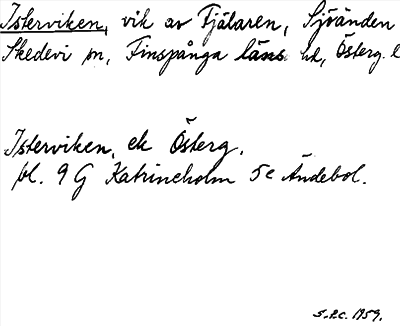 Isterviken, vik av Tjälaren, Sjöänden
Skedevi sn, Finspånga läns hd, Österg. l
Isterviken, ek Österg.
bl. 9 G Katrineholm 5e Ändebol.
S.P.C. 1959.